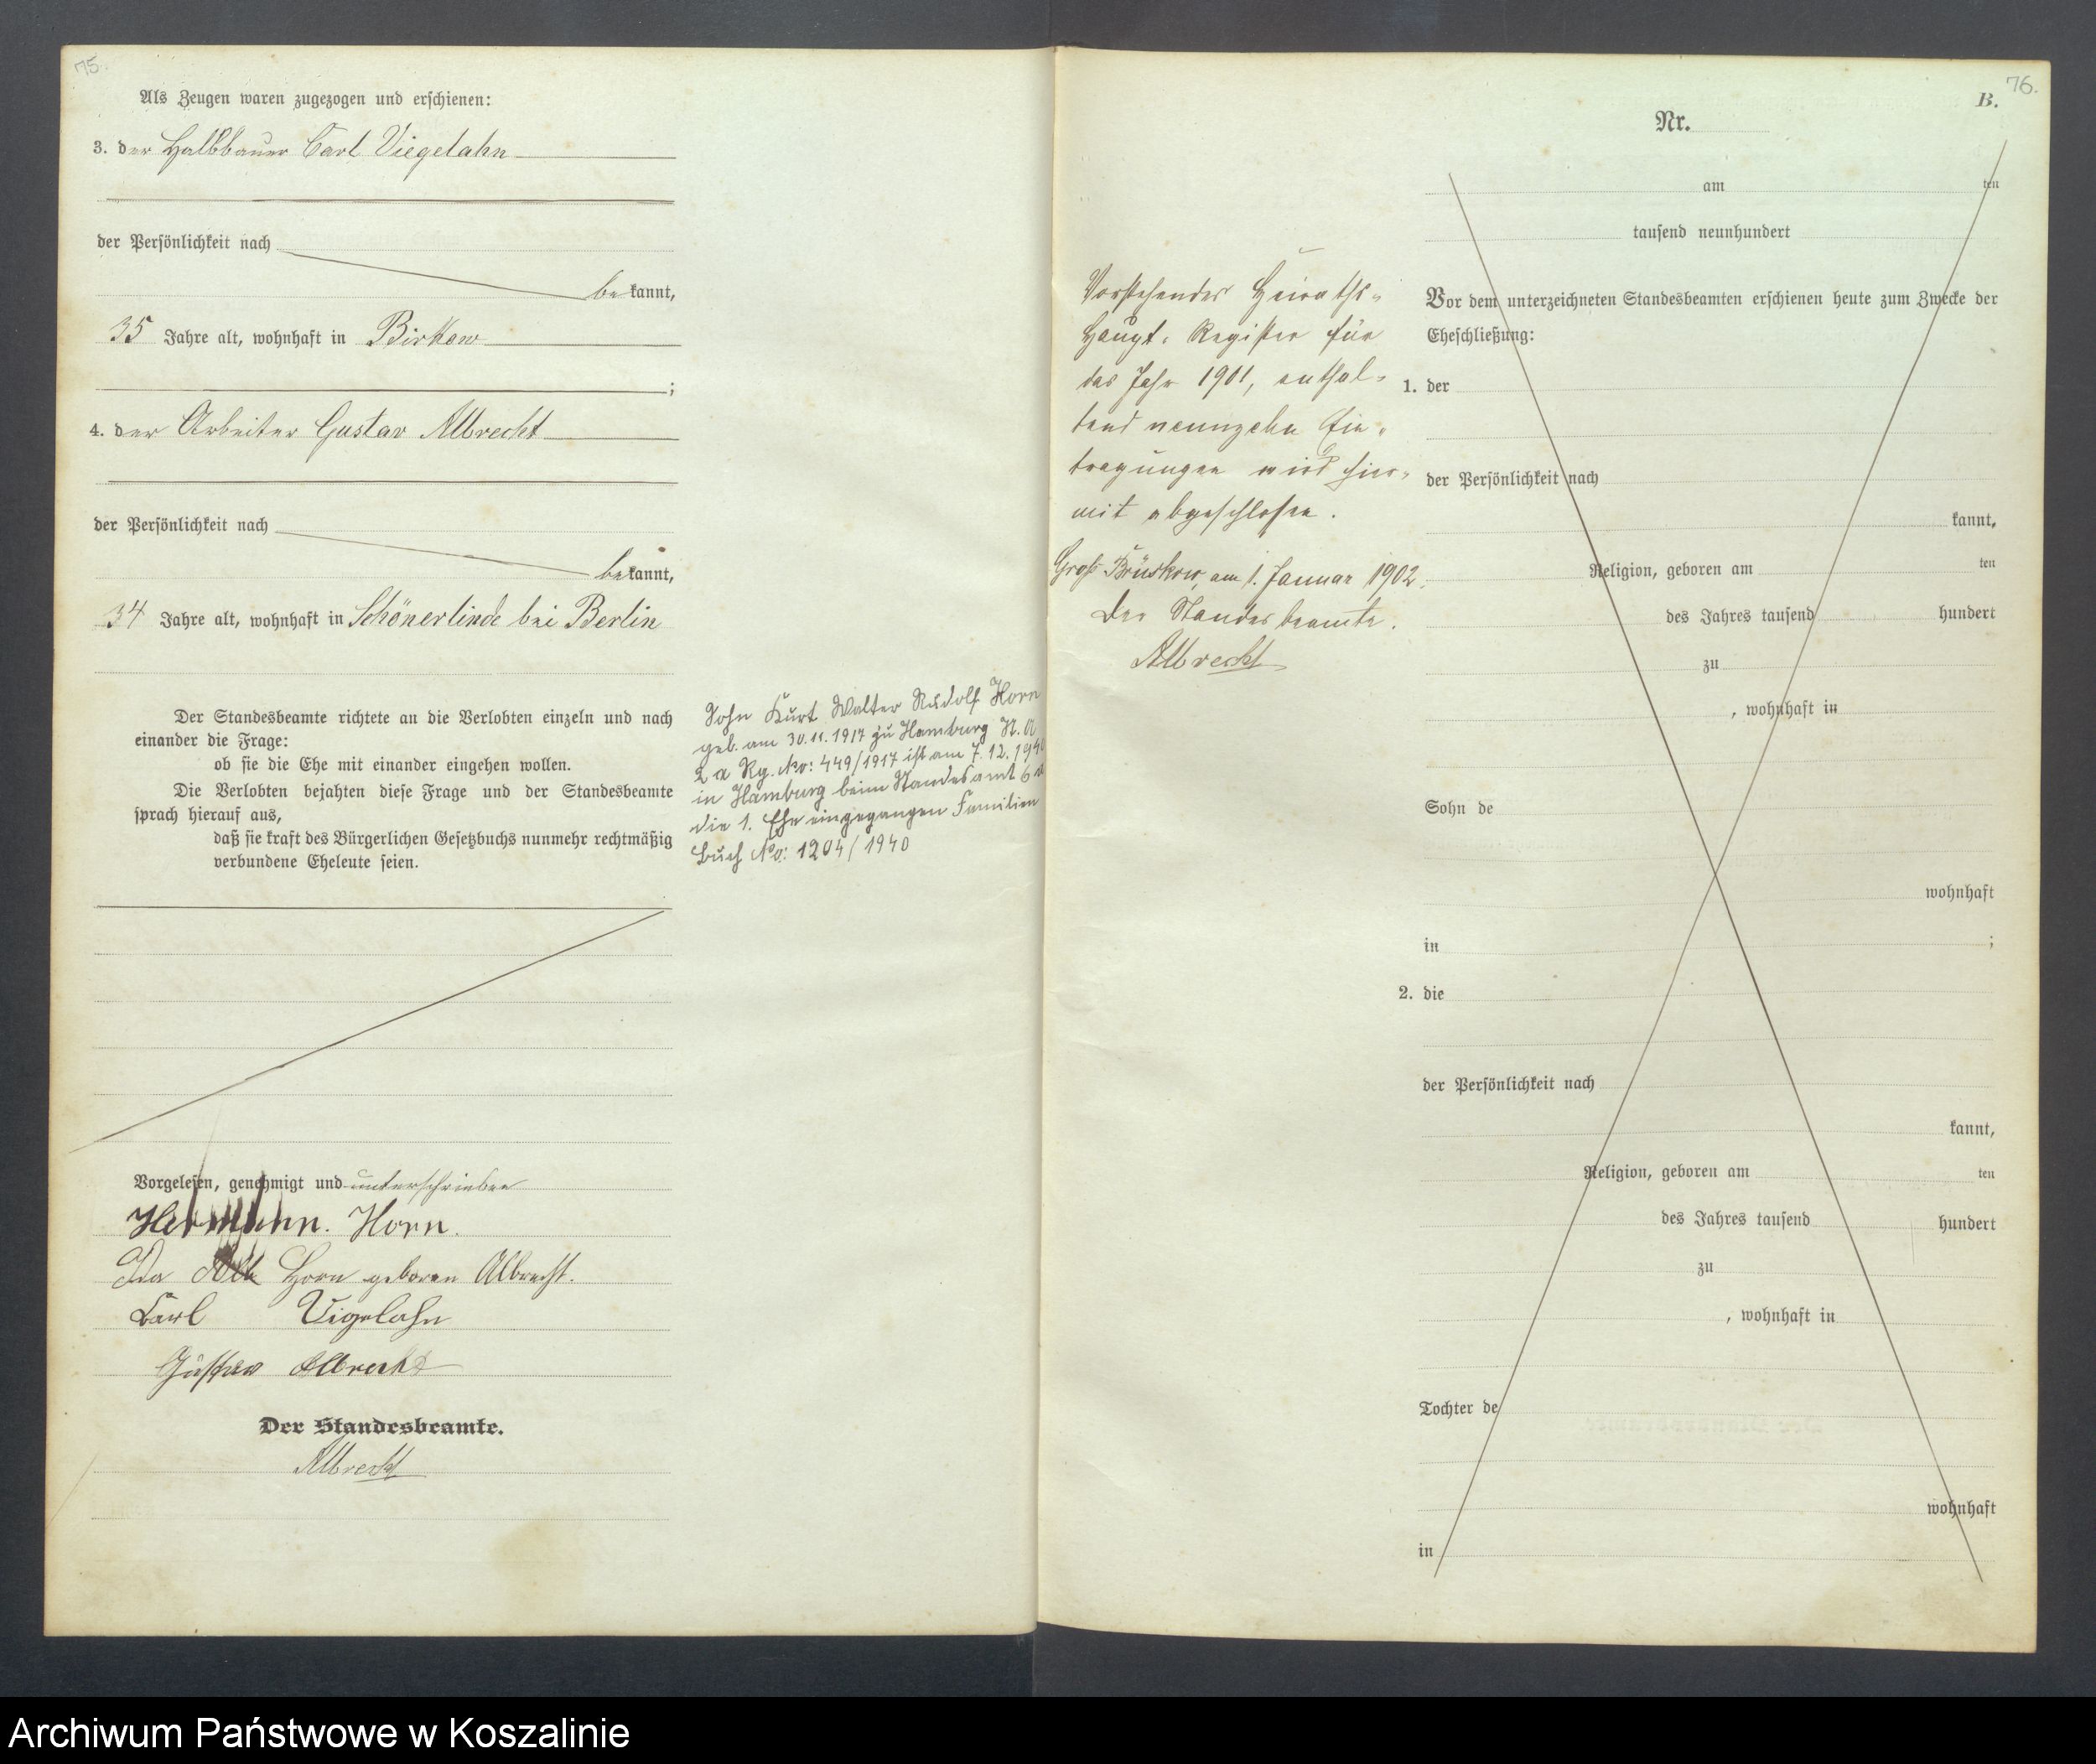 75.
Als Zeugen waren zugezogen und erschienen:
3. der Halbbauer Carl Viegelahn
der Persönlichkeit nach
bekannt,
35 Jahre alt, wohnhaft in Birkow
;
4. der Arbeiter Gustav Albrecht
der Persönlichkeit nach
bekannt,
34 Jahre alt, wohnhaft in Schönerlinde bei Berlin
Der Standesbeamte richtete an die Verlobten einzeln und nach
einander die Frage:
ob sie die Ehe mit einander eingehen wollen.
Die Verlobten bejahten diese Frage und der Standesbeamte
sprach hierauf aus,
daß sie kraft des Bürgerlichen Gesetzbuchs nunmehr rechtmäßig
verbundene Eheleute seien.
Vorgelesen, genehmigt und unterschrieben
Hermann. Horn.
Ida Horn geboren Albrecht.
Carl Vigelahn
Gustav Albrecht
Der Standesbeamte.
Albrecht
Sohn Kurt Walter Rudolf Horn
geb. am 30.11.1917 zu Hamburg St. A
2a Rg. No: 449/1917 ist am 7.12.1940
in Hamburg beim Standesamt 6a
die 1. Ehe eingegangen Familien
buch No: 1204/1940
76.
B.
Nr.
am ten
tausend neunhundert
Vorstehendes Heiraths-
Haupt-Register für
das Jahr 1901, enthal-
tend neunzehn Ein-
tragungen wird hier-
mit abgeschlossen.
Groß Brüskow, am 1. Januar 1902.
Der Standesbeamte.
Albrecht
Vor dem unterzeichneten Standesbeamten erschienen heute zum Zwecke der
Eheschließung:
1. der
der Persönlichkeit nach
kannt,
Religion, geboren am ten
des Jahres tausend hundert
zu
, wohnhaft in
Sohn de
wohnhaft
in ;
2. die
der Persönlichkeit nach
kannt,
Religion, geboren am ten
des Jahres tausend hundert
zu
, wohnhaft in
Tochter de
wohnhaft
in
Archiwum Państwowe w Koszalinie